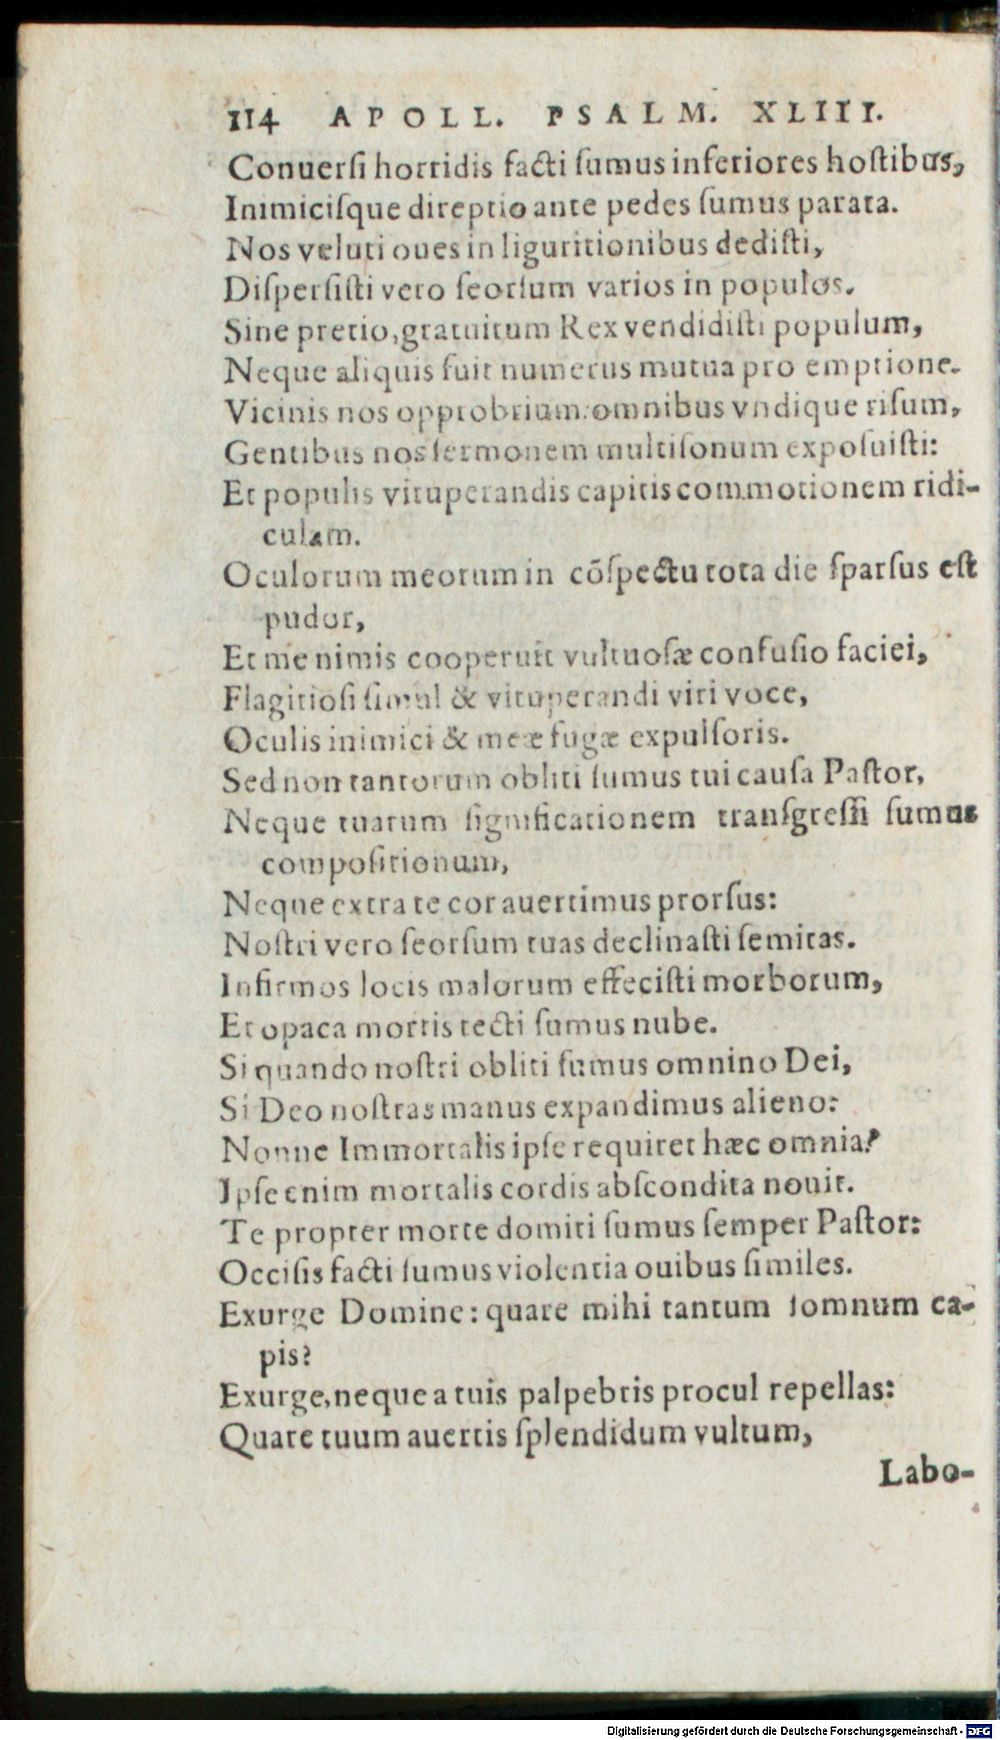 114 APOLL. PSALM. XLIII.
Conuerſi horridis facti ſumus inferiores hoſtibus,
Inimiciſque direptio ante pedes ſumus parata.
Nos veluti oues in liguritionibus dediſti,
Diſperſiſti vero ſeorſum varios in populos.
Sine pretio, gratuitum Rex vendidiſti populum,
Neque aliquis fuit numerus mutua pro emptione.
Vicinis nos opprobrium: omnibus vndique riſum,
Gentibus nos ſermonem multiſonum expoſuiſti:
Et populis vituperandis capitis commotionem ridi-
culam.
Oculorum meorum in cõſpectu tota die ſparſus eſt
pudor,
Et me nimis cooperuit vultuoſæ confuſio faciei,
Flagitioſi ſimul & vituperandi viri voce,
Oculis inimici & meæ fugæ expulſoris.
Sed non tantorum obliti ſumus tui cauſa Paſtor,
Neque tuarum ſignificationem tranſgreſſi ſumus
compoſitionum,
Neque extra te cor auertimus prorſus:
Noſtri vero ſeorſum tuas declinaſti ſemitas.
Infirmos locis malorum effeciſti morborum,
Et opaca mortis tecti ſumus nube.
Si quando noſtri obliti ſumus omnino Dei,
Si Deo noſtras manus expandimus alieno:
Nonne Immortalis ipſe requiret hæc omnia?
Ipſe enim mortalis cordis abſcondita nouit.
Te propter morte domiti ſumus ſemper Paſtor:
Occiſis facti ſumus violentia ouibus ſimiles.
Exurge Domine: quare mihi tantum ſomnum ca-
pis?
Exurge, neque a tuis palpebris procul repellas:
Quare tuum auertis ſplendidum vultum,
Labo-
Digitalisierung gefördert durch die Deutsche Forschungsgemeinschaft - DFG